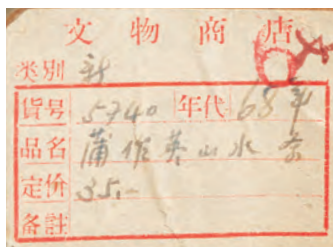 文物商店
类别 新
貨号 5740 年代 68年
品名 蒲作英山水条
定价 35.-
备註